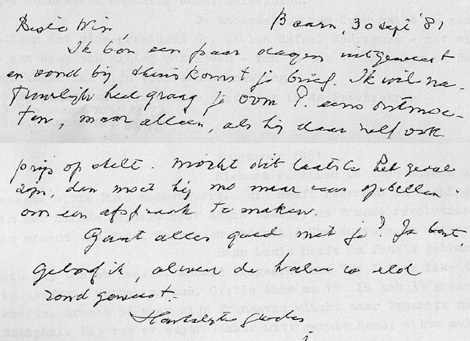 Baarn, 30 sept '81
Beste Wim,
Ik ben een paar dagen uitgeweest
en vond bij thuiskomst je brief. Ik wil na-
tuurlijk heel graag je oom P. eens ontmoe-
ten, maar alleen, als hij daar zelf ook
prijs op stelt. Mocht dit laatste het geval
zijn, dan moet hij me maar eens opbellen
om een afspraak te maken.
Gaat alles goed met je? Je bent,
geloof ik, alweer de halve wereld
rond geweest.
Hartelijke groeten